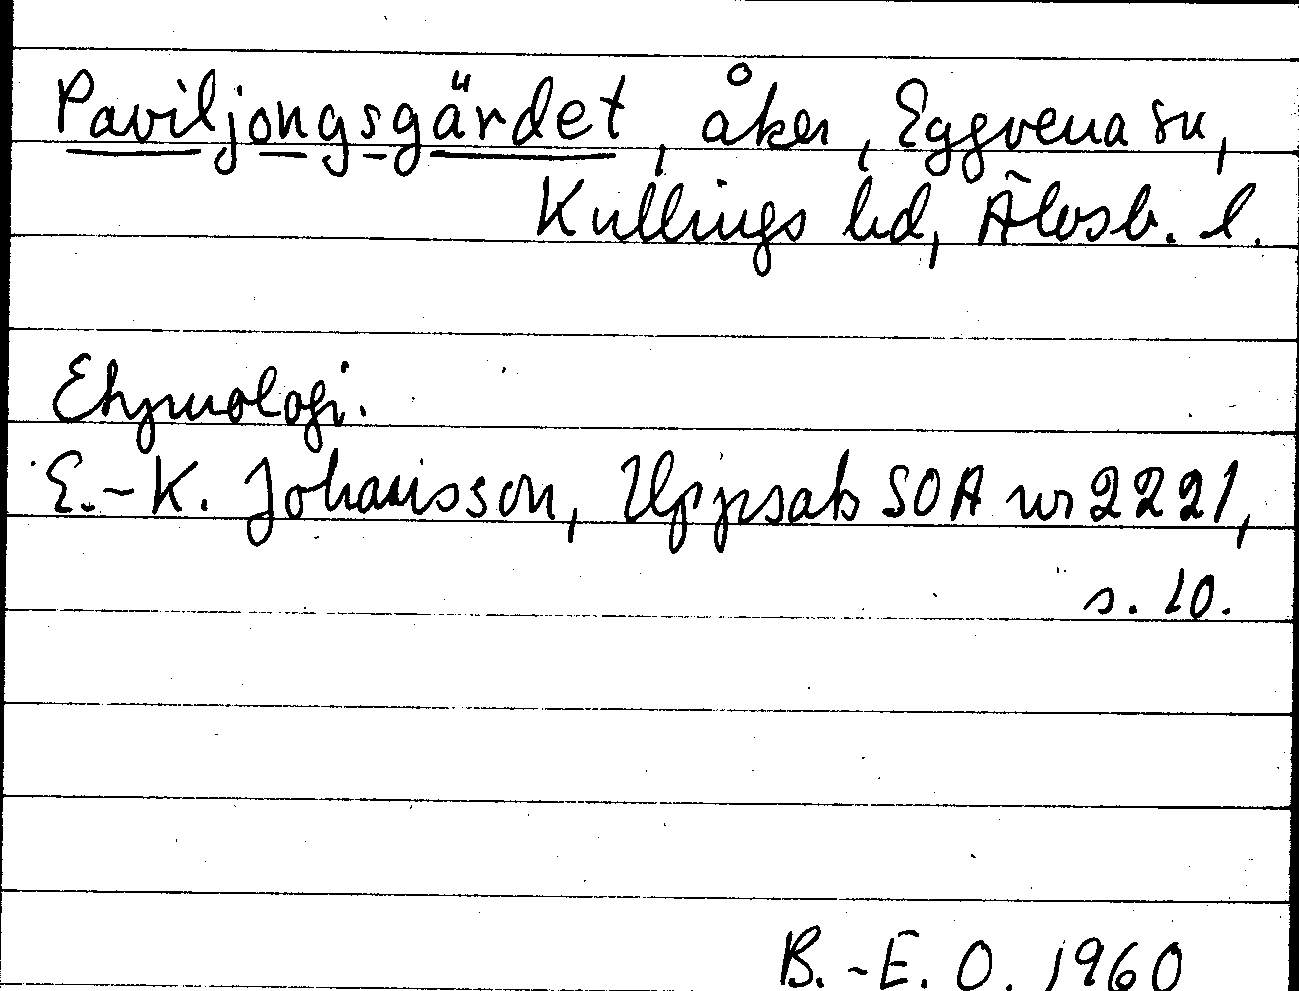 Paviljongsgärdet, åker, Eggvena sn,
Kullings hd, Älvsb. l.
Etymologi.
E.-K. Johansson, Uppsats SOA nr 2221,
s. 10.
B.-E. O. 1960